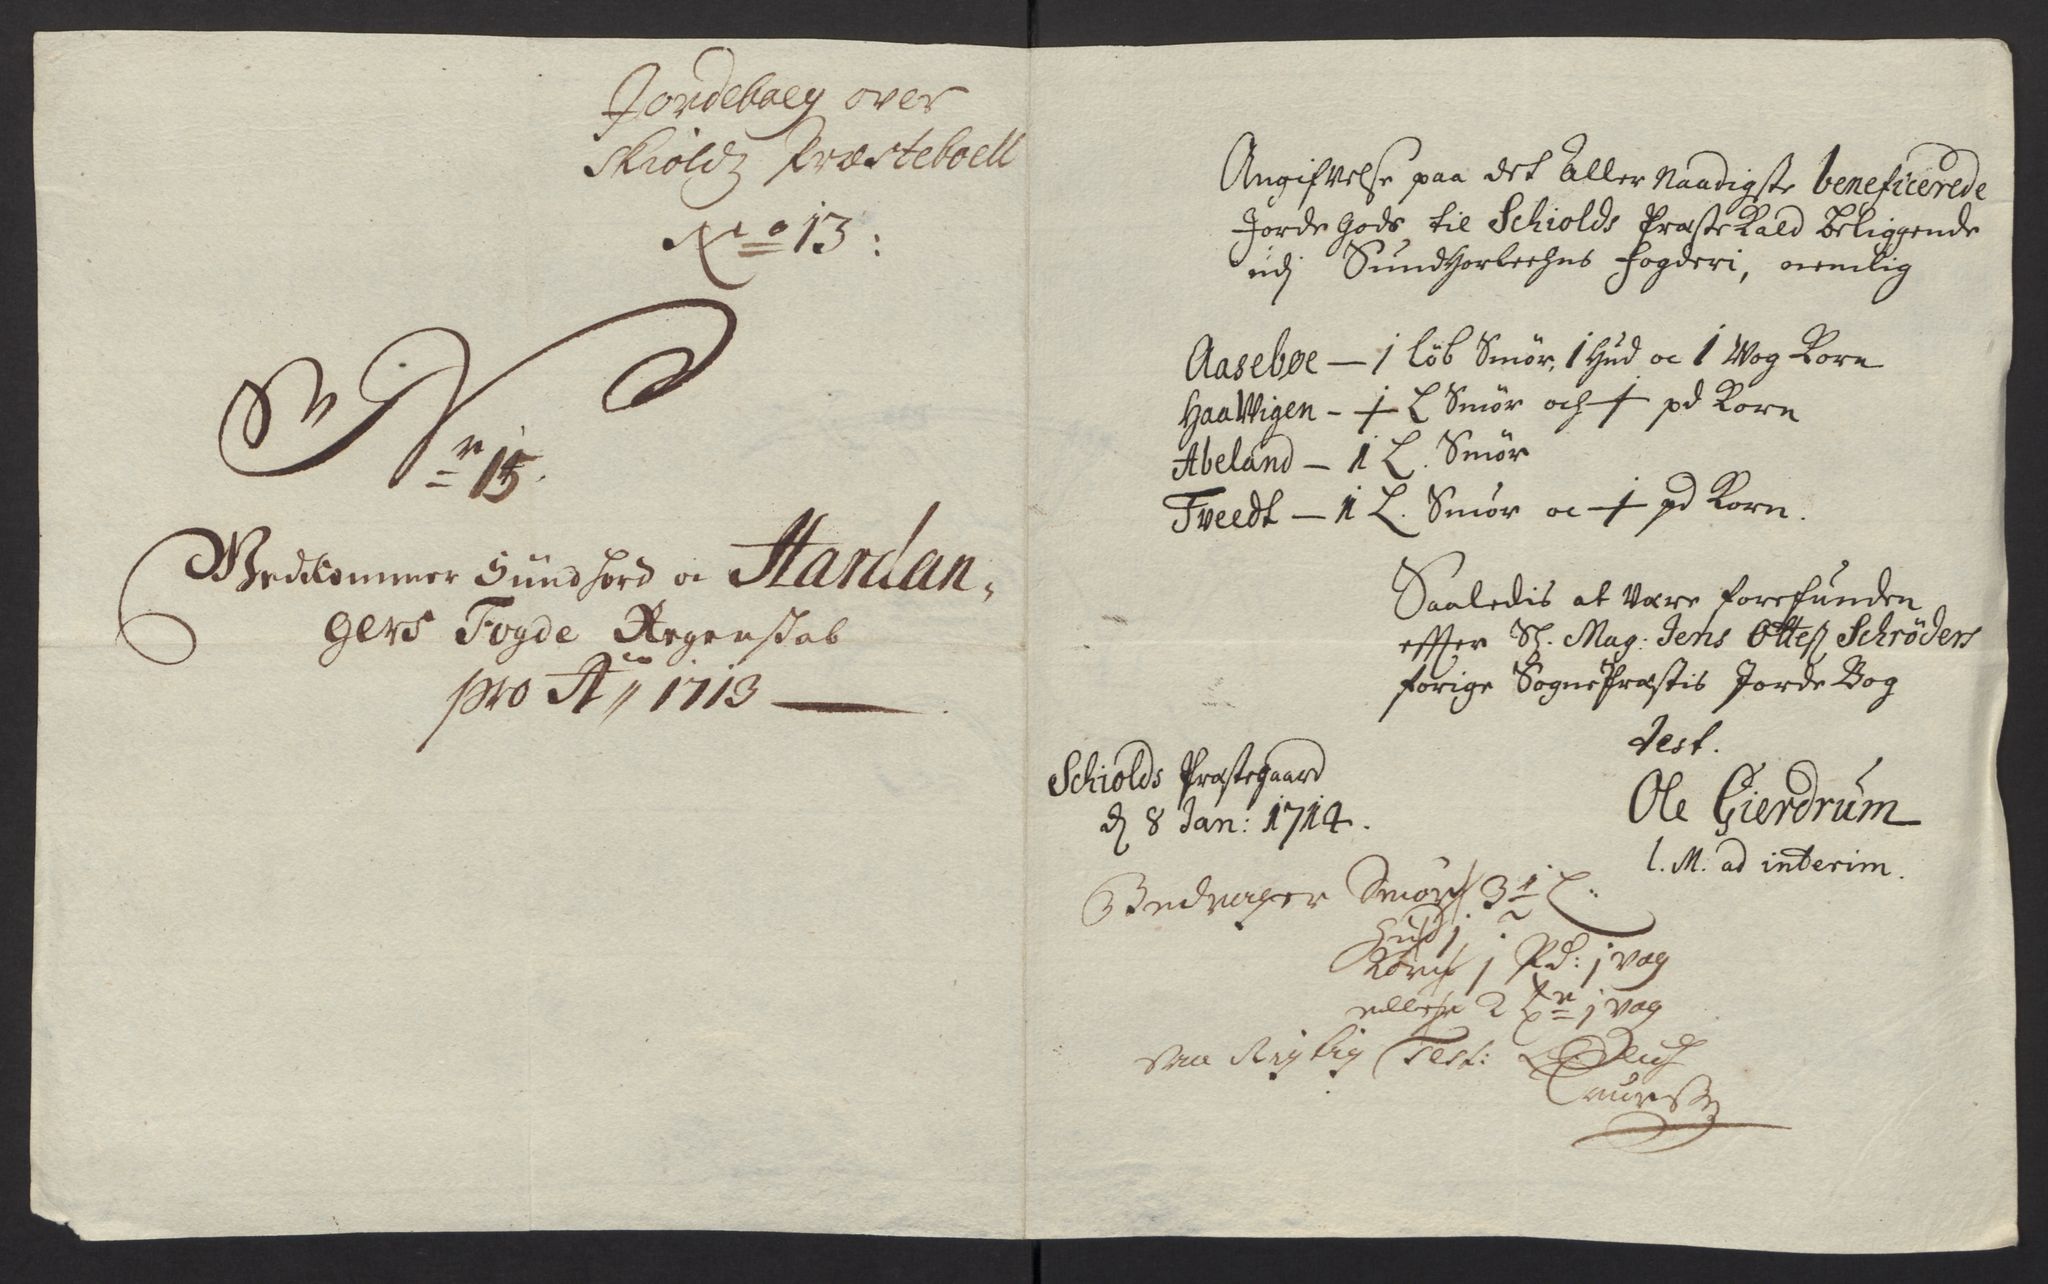 Jordeboeg over
Skiolds Præsteboell
No 13:
Nr 15.
Vedkommer Sundhord oc Hardan-
gers Fogde Regenskab
pro Ao 1713
Angifvelse paa det Aller Naadigste beneficerede
Jorde Gods til Schiolds Præste Kald beliggende
udj Sundhorlehns fogderi, nemlig
Aaseböe — 1 löb Smör, 1 Hud oc 1 Wog Korn
HaaWigen - ½ L Smör och ½ pd Korn
Abeland — 1 L. Smör
Tveedt — 1 L. Smör oc ½ pd Korn.
Saaledis at være forefunden
effter Sl. Mag: Jens Ottess Schröders
forige SognePræstis Jorde Bog
Test.
Ole Gierdrum
l. M. ad interim.
Schiolds Præstegaard
d 8 Jan: 1714.
Bedrager Smör 3½ L:
Hud 1
Korn 1 Pd: 1 vog
eller 2 1 vog
saa Rigtig Test: